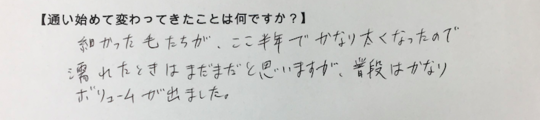 【通い始めて変わってきたことは何ですか？】
細かった毛たちが、ここ半年でかなり太くなったので
濡れたときはまだまだと思いますが、普段はかなり
ボリュームが出ました。